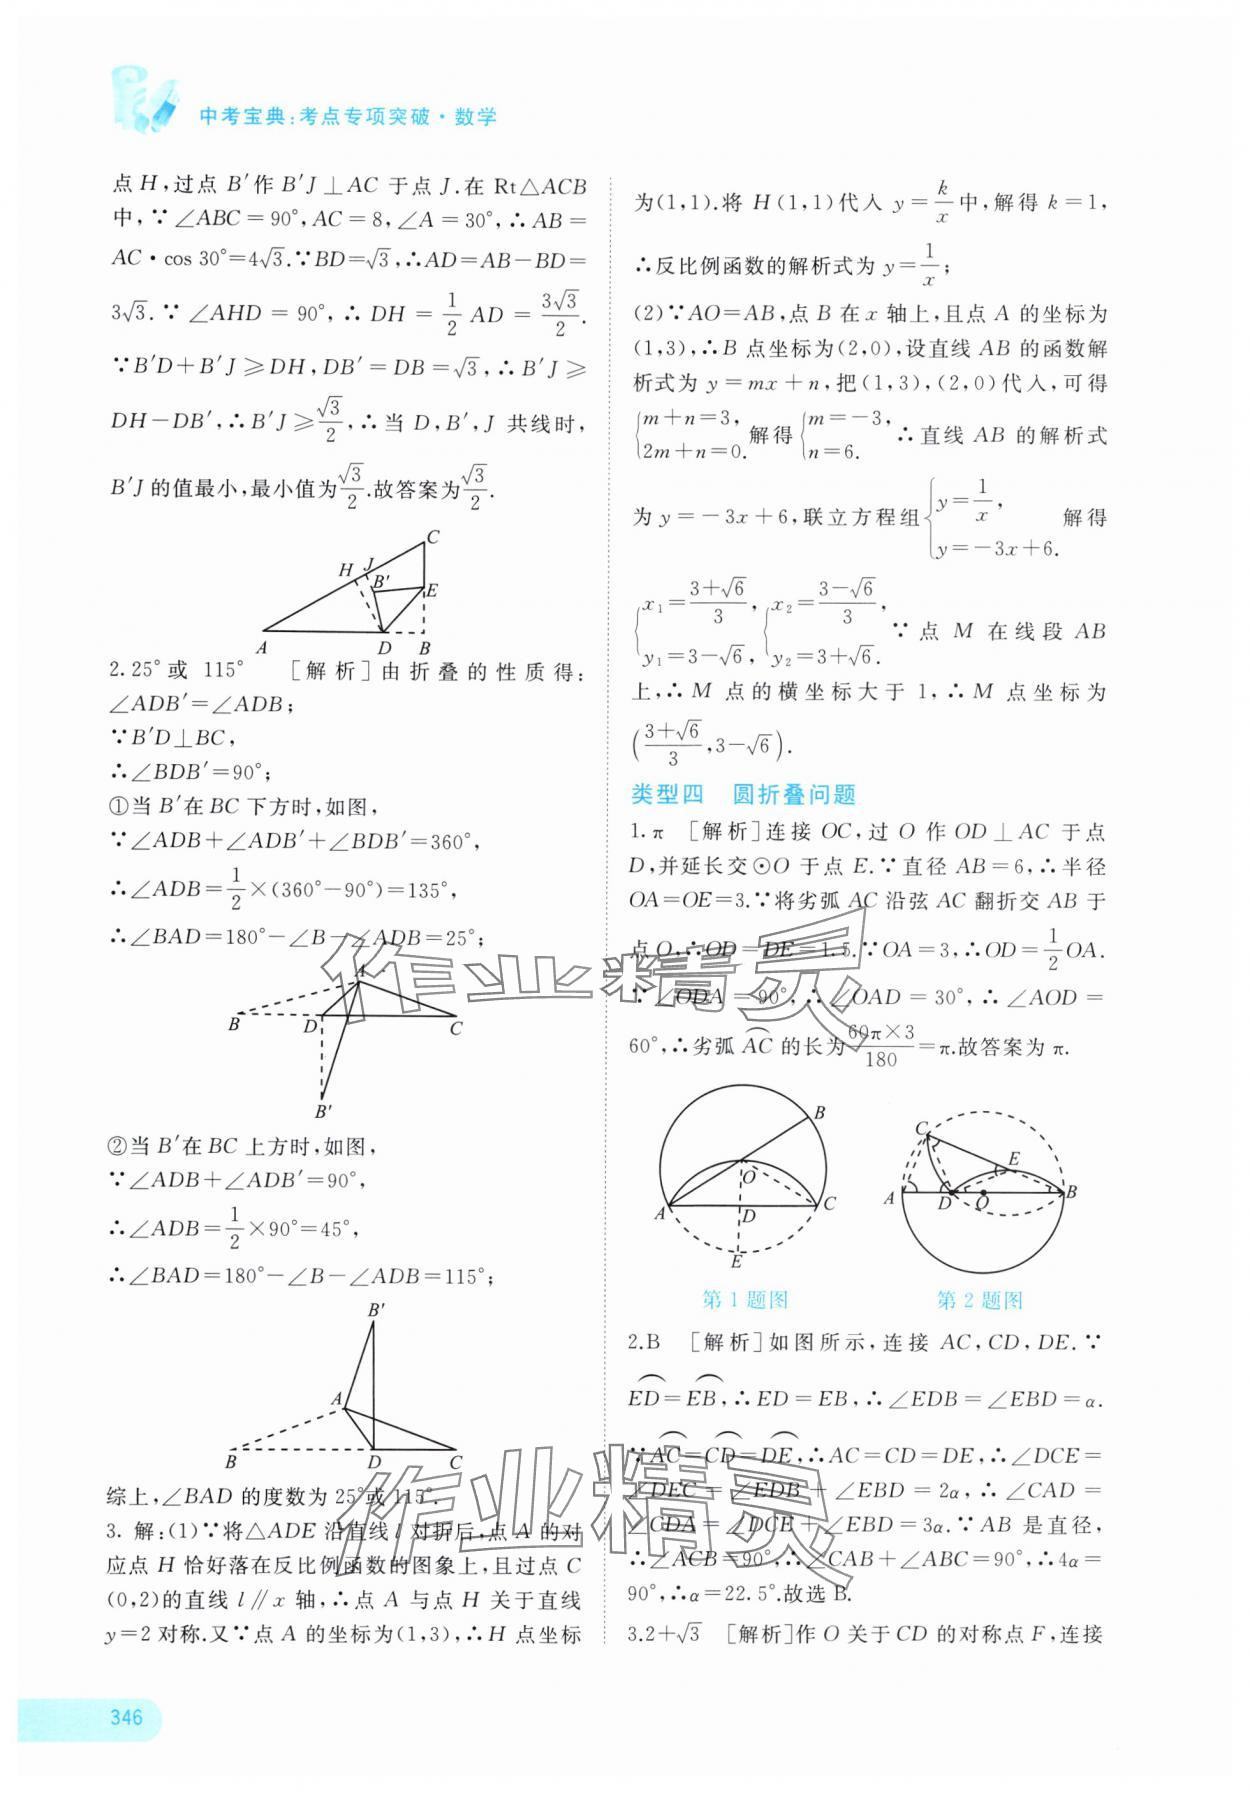 中考宝典:考点专项突破·数学
点 H,过点 B′作 B′J⊥AC 于点 J.在 Rt△ACB
中,∵∠ABC=90°,AC=8,∠A=30°,∴AB=
AC·cos 30°=4√3.∵BD=√3,∴AD=AB-BD=
3√3.∵∠AHD=90°,∴DH=1/2 AD=3√3/2.
∵B′D+B′J≥DH,DB′=DB=√3,∴B′J≥
DH-DB′,∴B′J≥√3/2,∴当 D,B′,J 共线时,
B′J 的值最小,最小值为√3/2.故答案为√3/2.
C
H J B′
E
A D B
2.25°或 115° [解析]由折叠的性质得:
∠ADB′=∠ADB;
∵B′D⊥BC,
∴∠BDB′=90°;
①当 B′在 BC 下方时,如图,
∵∠ADB+∠ADB′+∠BDB′=360°,
∴∠ADB=1/2×(360°-90°)=135°,
∴∠BAD=180°-∠B-∠ADB=25°;
A
B D C
B′
②当 B′在 BC 上方时,如图,
∵∠ADB+∠ADB′=90°,
∴∠ADB=1/2×90°=45°,
∴∠BAD=180°-∠B-∠ADB=115°;
B′
A
B D C
综上,∠BAD 的度数为 25°或 115°.
3. 解:(1)∵将△ADE 沿直线 l 对折后,点 A 的对
应点 H 恰好落在反比例函数的图象上,且过点 C
(0,2)的直线 l∥x 轴,∴点 A 与点 H 关于直线
y=2 对称.又∵点 A 的坐标为(1,3),∴H 点坐标
为(1,1).将 H(1,1)代入 y=k/x中,解得 k=1,
∴反比例函数的解析式为 y=1/x;
(2)∵AO=AB,点 B 在 x 轴上,且点 A 的坐标为
(1,3),∴B 点坐标为(2,0),设直线 AB 的函数解
析式为 y=mx+n,把(1,3),(2,0)代入,可得
{m+n=3, 2m+n=0. 解得{m=-3, n=6. ∴直线 AB 的解析式
为 y=-3x+6,联立方程组{y=1/x, y=-3x+6. 解得
{x₁=(3+√6)/3, y₁=3-√6, {x₂=(3-√6)/3, y₂=3+√6. ∵点 M 在线段 AB
上,∴M 点的横坐标大于 1,∴M 点坐标为
((3+√6)/3,3-√6).
类型四 圆折叠问题
1.π [解析]连接 OC,过 O 作 OD⊥AC 于点
D,并延长交⊙O 于点 E.∵直径 AB=6,∴半径
OA=OE=3.∵将劣弧 AC 沿弦 AC 翻折交 AB 于
点 O,∴OD=DE=1.5.∵OA=3,∴OD=1/2OA.
∵∠ODA=90°,∴∠OAD=30°,∴∠AOD=
60°,∴劣弧 AC⌒ 的长为60π×3/180=π.故答案为 π.
B
O
A D C
E
第 1 题图
C
E
A D O B
第 2 题图
2.B [解析]如图所示,连接 AC,CD,DE.∵
ED⌒=EB⌒,∴ED=EB,∴∠EDB=∠EBD=α.
∵AC⌒=CD⌒=DE⌒,∴AC=CD=DE,∴∠DCE=
∠DEC=∠EDB+∠EBD=2α,∴∠CAD=
∠CDA=∠DCE+∠EBD=3α.∵AB 是直径,
∴∠ACB=90°,∴∠CAB+∠ABC=90°,∴4α=
90°,∴α=22.5°.故选 B.
3.2+√3 [解析]作 O 关于 CD 的对称点 F,连接
作业精灵
作业精灵
346